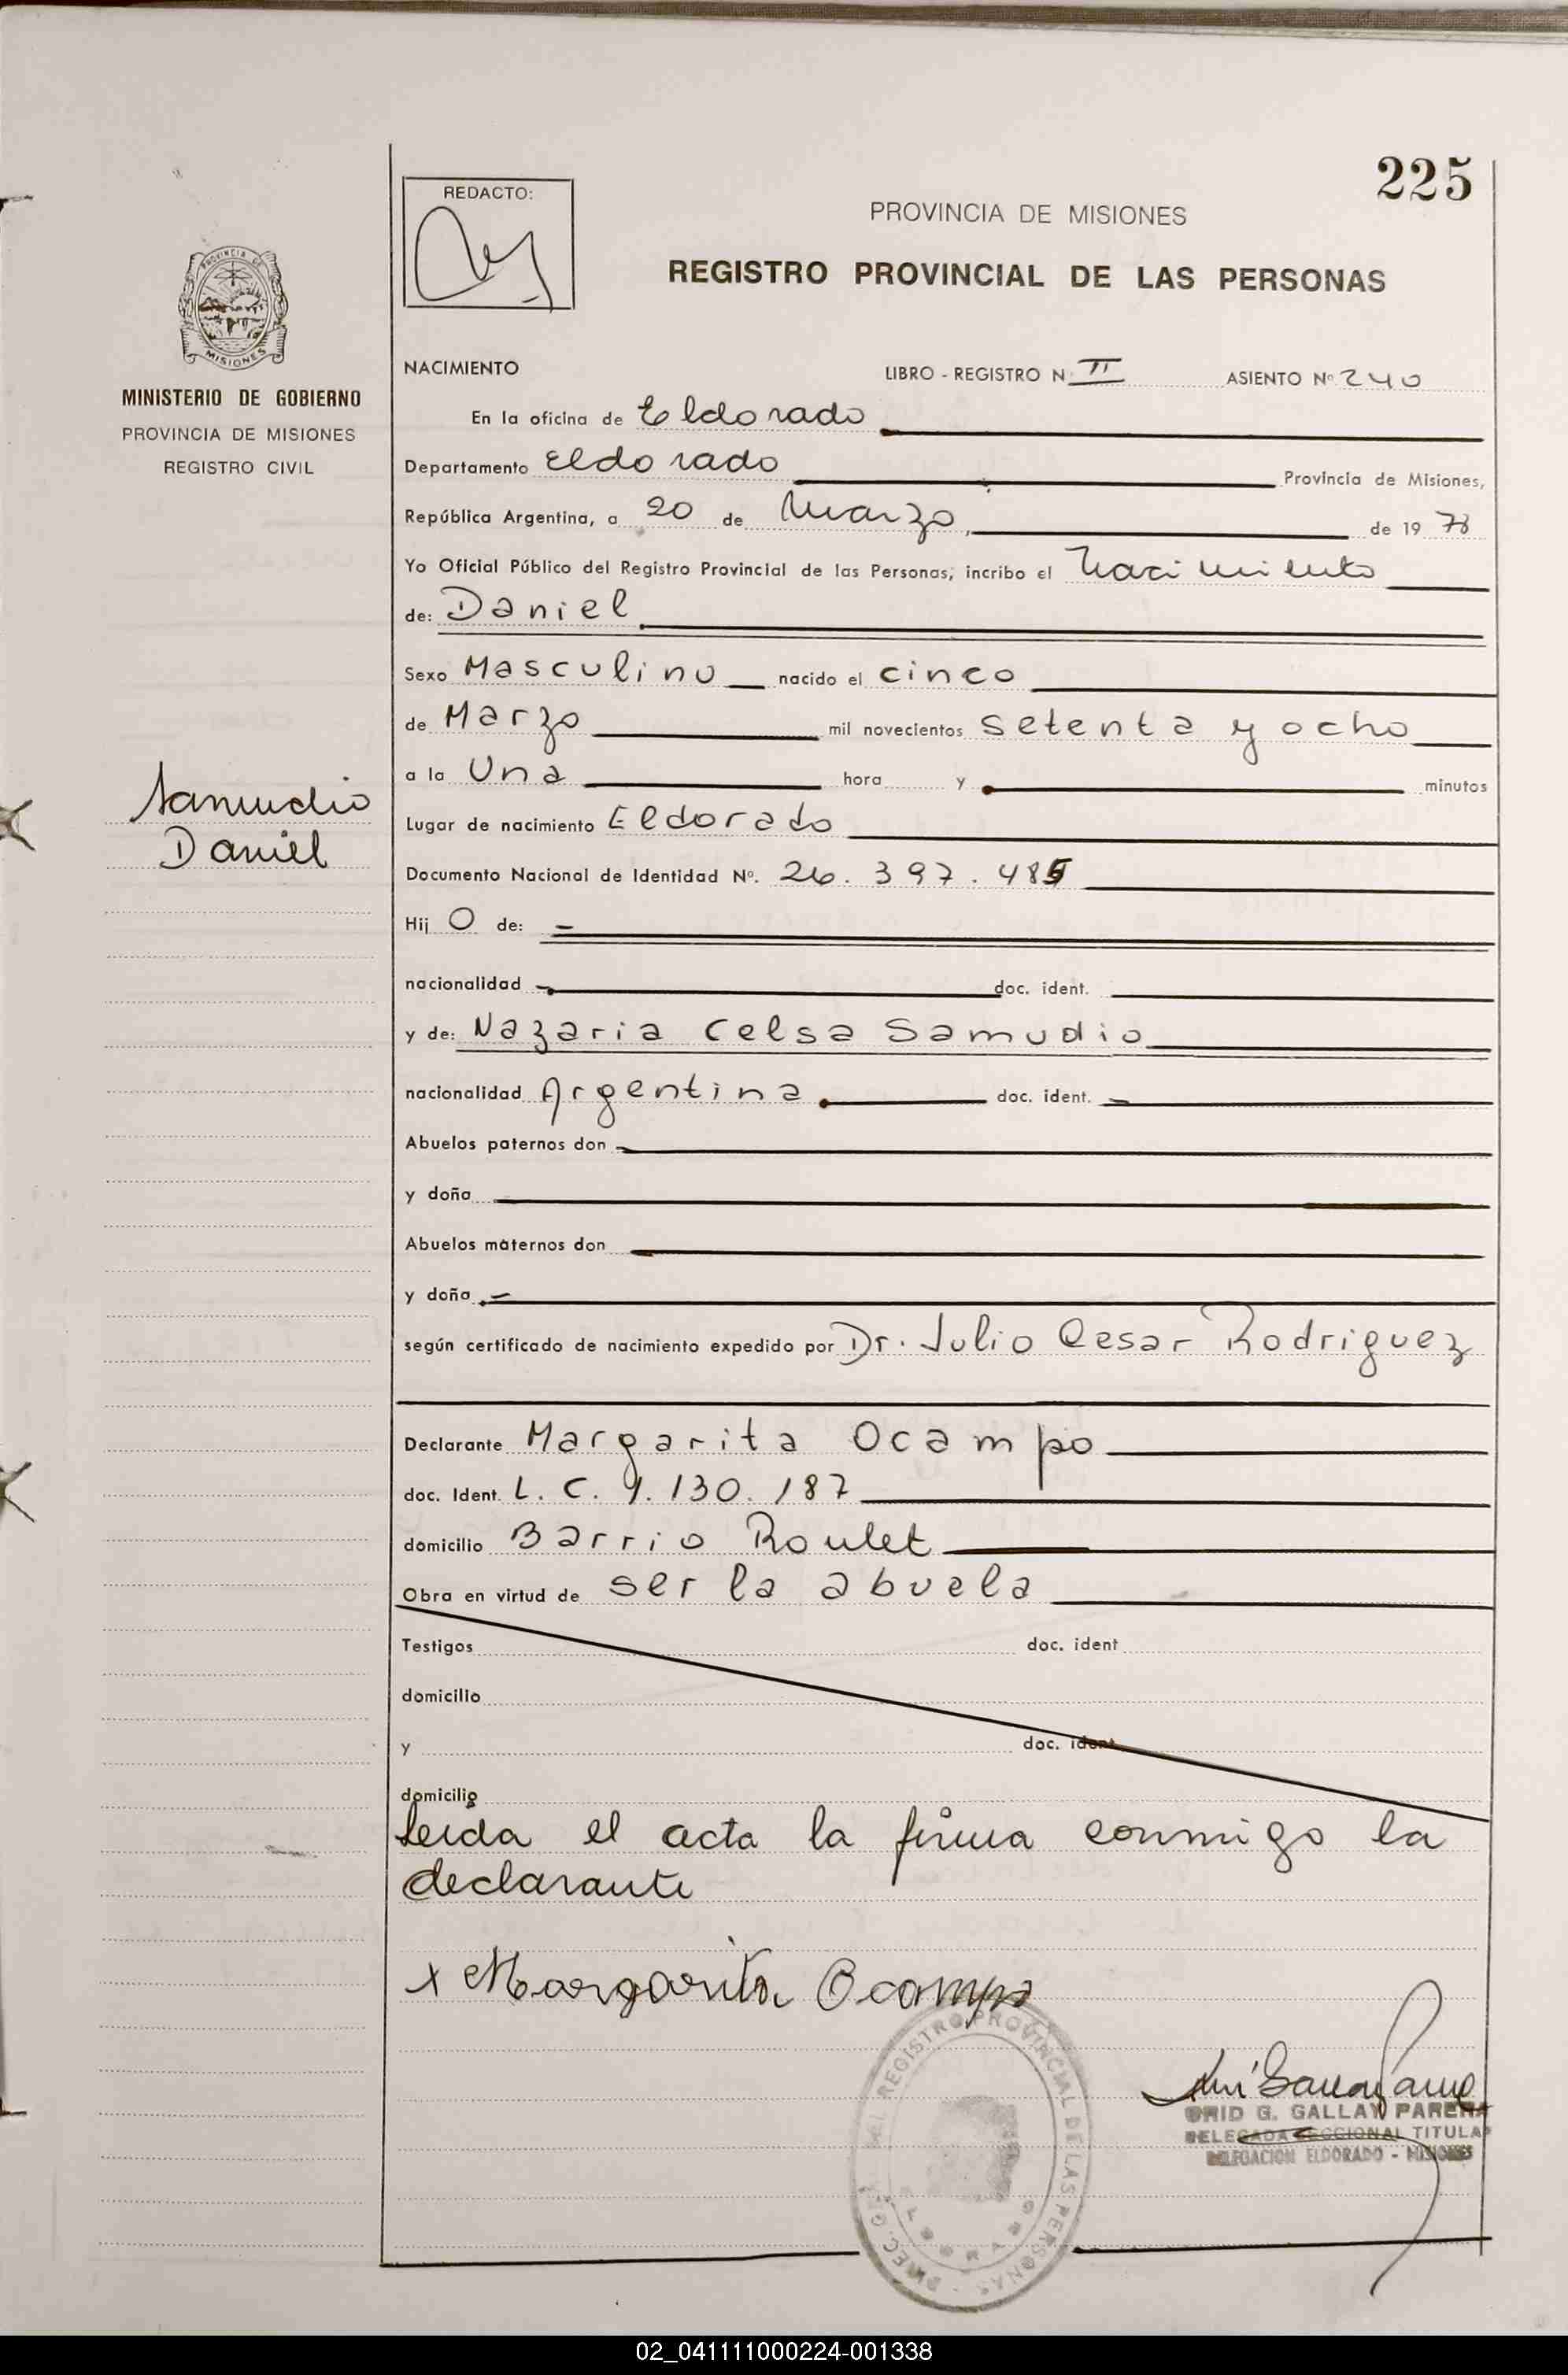 225
REDACTO:
PROVINCIA DE MISIONES
REGISTRO PROVINCIAL DE LAS PERSONAS
PROVINCIA DE
MISIONES
MINISTERIO DE GOBIERNO
PROVINCIA DE MISIONES
REGISTRO CIVIL
NACIMIENTO LIBRO - REGISTRO N II ASIENTO Nº 240
En la oficina de Eldorado
Departamento Eldorado Provincia de Misiones,
República Argentina, a 20 de Marzo, de 19 78
Yo Oficial Público del Registro Provincial de las Personas, incribo el Nacimiento
de: Daniel
Sexo Masculino nacido el cinco
de Marzo mil novecientos setenta y ocho
a la Una hora y minutos
Samudio
Daniel
Lugar de nacimiento Eldorado
Documento Nacional de Identidad Nº. 26.397.485
Hij O de: –
nacionalidad doc. ident.
y de: Nazaria Celsa Samudio
nacionalidad Argentina. doc. ident.
Abuelos paternos don
y doña
Abuelos maternos don
y doña
según certificado de nacimiento expedido por Dr. Julio Cesar Rodriguez
Declarante Margarita Ocampo
doc. Ident. L. C. 9.130.187
domicilio Barrio Roulet
Obra en virtud de ser la abuela
Testigos doc. ident
domicilio
y doc. ident
domicilio
Leida el acta la firma conmigo la
declarante
x Margarita Ocampo
DIREC. GRAL. DEL REGISTRO PROVINCIAL DE LAS PERSONAS
ELDORADO
G. GALLAY PARERA
DELEGADA SECCIONAL TITULAR
DELEGACION ELDORADO - MISIONES
02_041111000224-001338